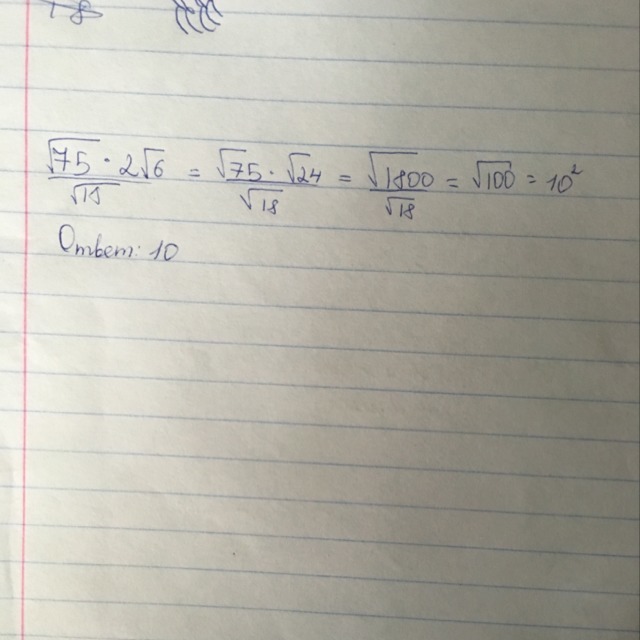 √75 · 2√6 / √18 = √75 · √24 / √18 = √1800 / √18 = √100 = 10²
Ответ: 10